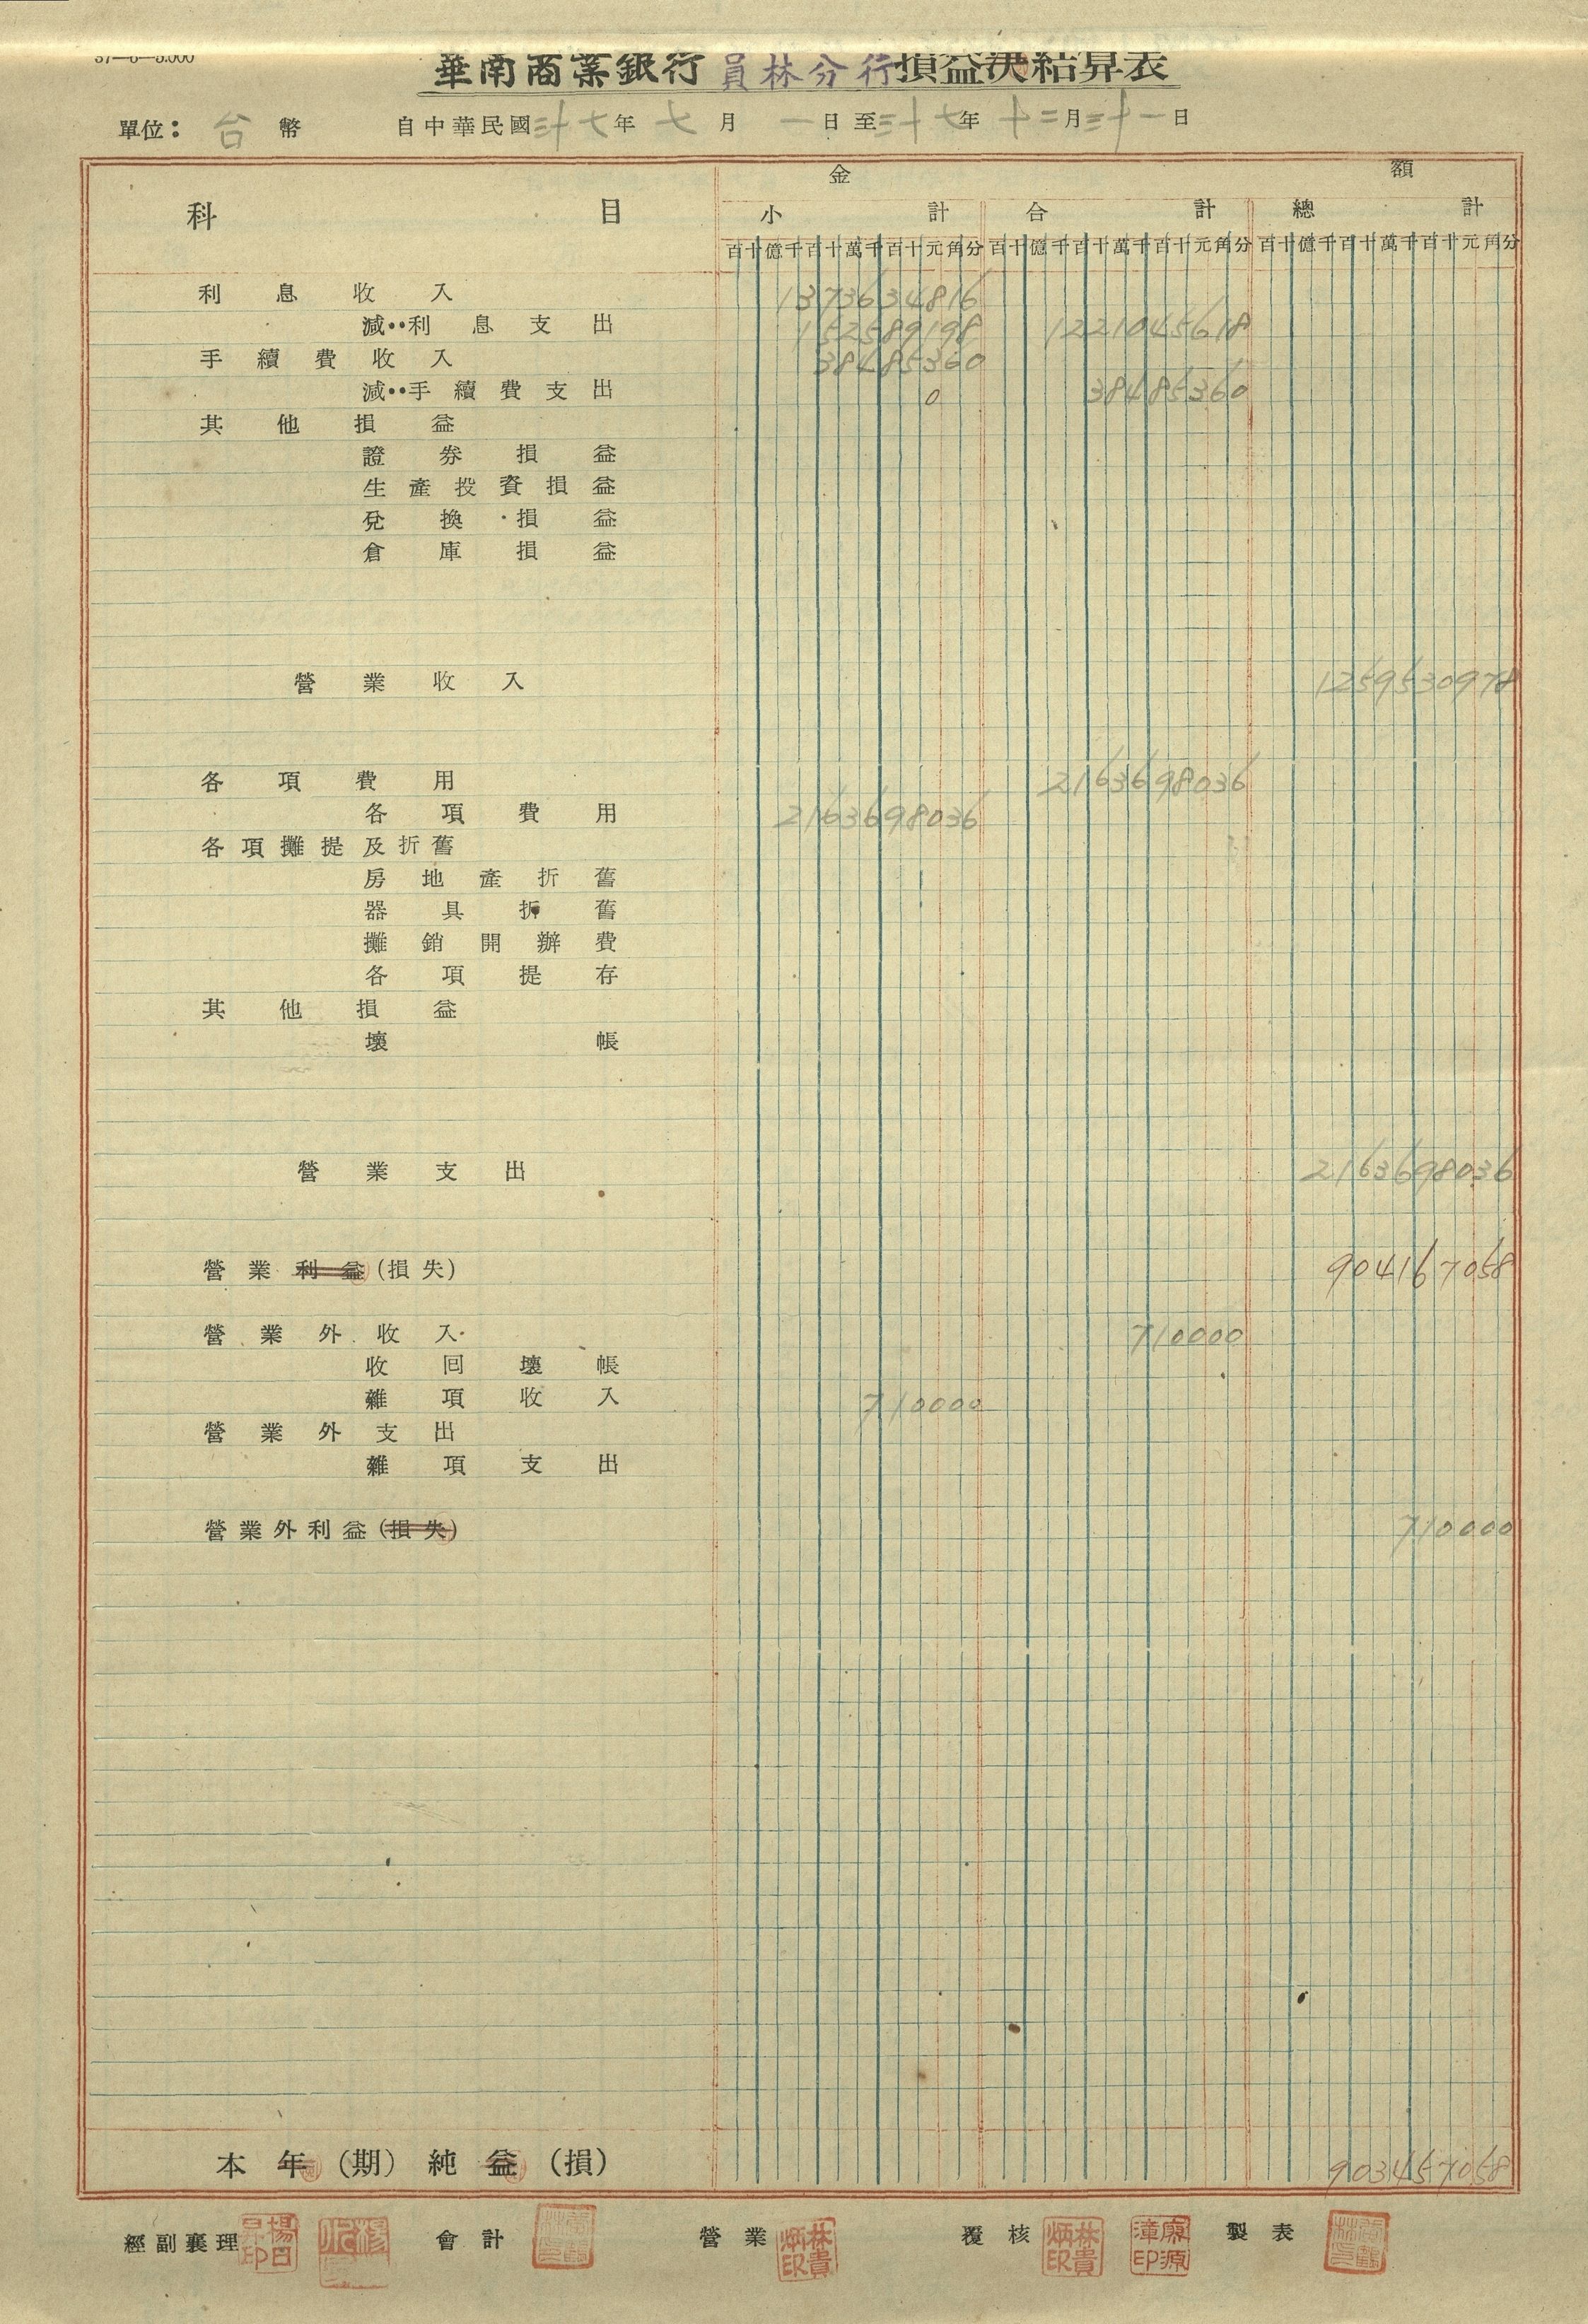 37—6—5.000
華南商業銀行員林分行損益決結算表
單位：台幣 自中華民國三十七年七月一日至三十七年十二月三十一日
金額
科目 小計 合計 總計
百十億千百十萬千百十元角分 百十億千百十萬千百十元角分 百十億千百十萬千百十元角分
利息收入 1373634816
減：利息支出 152589198 1221045618
手續費收入 38485360
減：手續費支出 0 38485360
其他損益
證券損益
生產投資損益
兌換損益
倉庫損益
營業收入 1259530978
各項費用 2163698036
各項費用 2163698036
各項攤提及折舊
房地產折舊
器具折舊
攤銷開辦費
各項提存
其他損益
壞帳
營業支出 2163698036
營業利益(損失) 904167058
營業外收入 710000
收回壞帳
雜項收入 710000
營業外支出
雜項支出
營業外利益(損失) 710000
本年(期)純益(損) 903457058
經副襄理 楊日昇印 會計 營業 林貴炳印 覆核 林貴炳印 廖源漳印 製表